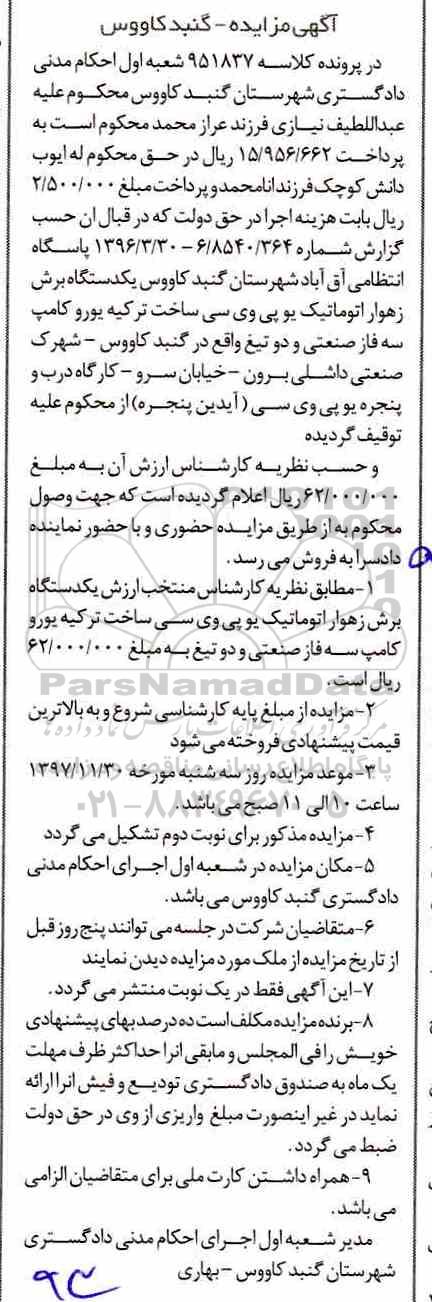 آگهی مزایده - گنبد کاووس
در پرونده کلاسه ۹۵۱۸۳۷ شعبه اول احکام مدنی
دادگستری شهرستان گنبد کاووس محکوم علیه
عبداللطیف نیازی فرزند عراز محمد محکوم است به
پرداخت ۱۵/۹۵۶/۶۶۲ ریال در حق محکوم له ایوب
دانش کوچک فرزند انامحمد و پرداخت مبلغ ۲/۵۰۰/۰۰۰
ریال بابت هزینه اجرا در حق دولت که در قبال ان حسب
گزارش شماره ۶/۸۵۴۰/۳۶۴ - ۱۳۹۶/۳/۳۰ پاسگاه
انتظامی آق آباد شهرستان گنبد کاووس یکدستگاه برش
زهوار اتوماتیک یو پی وی سی ساخت ترکیه یورو کامپ
سه فاز صنعتی و دو تیغ واقع در گنبد کاووس - شهرک
صنعتی داشلی برون - خیابان سرو - کارگاه درب و
پنجره یو پی وی سی ( آیدین پنجره) از محکوم علیه
توقیف گردیده
و حسب نظریه کارشناس ارزش آن به مبلغ
۶۲/۰۰۰/۰۰۰ ریال اعلام گردیده است که جهت وصول
محکوم به از طریق مزایده حضوری و با حضور نماینده
دادسرا به فروش می رسد.
۱- مطابق نظریه کارشناس منتخب ارزش یکدستگاه
برش زهوار اتوماتیک یو پی وی سی ساخت ترکیه یورو
کامپ سه فاز صنعتی و دو تیغ به مبلغ ۶۲/۰۰۰/۰۰۰
ریال است.
ParsNamadData
۲- مزایده از مبلغ پایه کارشناسی شروع و به بالاترین
قیمت پیشنهادی فروخته می شود
پایگاه اطلاع رسانی مناقصه و مزایده
۳- موعد مزایده روز سه شنبه مورخه ۱۳۹۷/۱۱/۳۰
ساعت ۱۰ الی ۱۱ صبح می باشد.
۰۲۱-۸۸۳۴۹۶۷۰-۵
۴- مزایده مذکور برای نوبت دوم تشکیل می گردد
۵- مکان مزایده در شعبه اول اجرای احکام مدنی
دادگستری گنبد کاووس می باشد.
۶- متقاضیان شرکت در جلسه می توانند پنج روز قبل
از تاریخ مزایده از ملک مورد مزایده دیدن نمایند
۷- این آگهی فقط در یک نوبت منتشر می گردد.
۸- برنده مزایده مکلف است ده درصد بهای پیشنهادی
خویش را فی المجلس و مابقی انرا حداکثر ظرف مهلت
یک ماه به صندوق دادگستری تودیع و فیش انرا ارائه
نماید در غیر اینصورت مبلغ واریزی از وی در حق دولت
ضبط می گردد.
۹- همراه داشتن کارت ملی برای متقاضیان الزامی
می باشد.
مدیر شعبه اول اجرای احکام مدنی دادگستری
شهرستان گنبد کاووس - بهاری